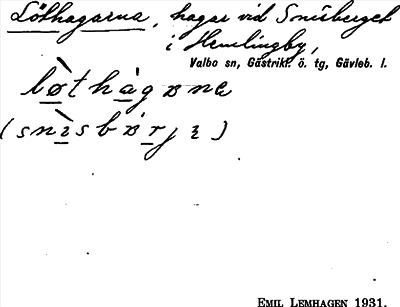 Löthagarna, hagar vid Snüsberget
i Hemlingby,
Valbo sn, Gästrikl. ö. tg, Gävleb. l.
lø̀thàgɐnɐ
EMIL LEMHAGEN 1931.